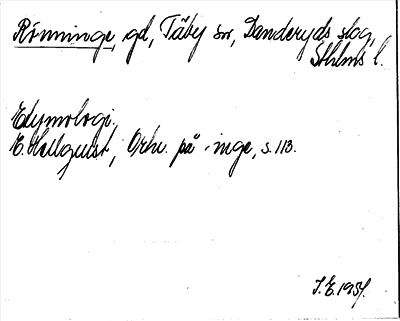 Rönninge, gd, Täby sn, Danderyds slag,
Sthlms l.
Etymologi.
E. Hellquist, Ortn. på -inge, s. 113.